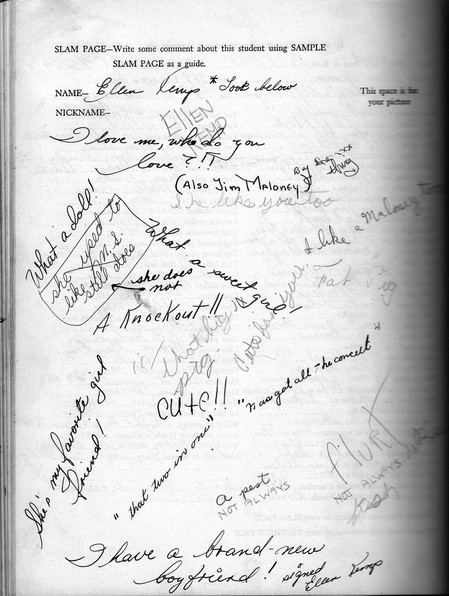 SLAM PAGE—Write some comment about this student using SAMPLE
SLAM PAGE as a guide.
NAME— Ellen Kemp * Look below
This space is for
your picture
NICKNAME—
ELLEN
KEMP
I love me, who do you
love?!!
(Also Jim Maloney)
She like you too
What a doll!
she used to
like J.M.S.
still does
she does
not
What a sweet girl!
I like a Maloney
Fat Pig
A Knockout!!
that big
pig.
CUTE!!
"was got all-the conceit"
She's my favorite girl
friend!
"that two in one"
flurt
NOT ALWAYS
a pest
NOT ALWAYS
I have a brand-new
boyfriend! signed
Ellen Kemp